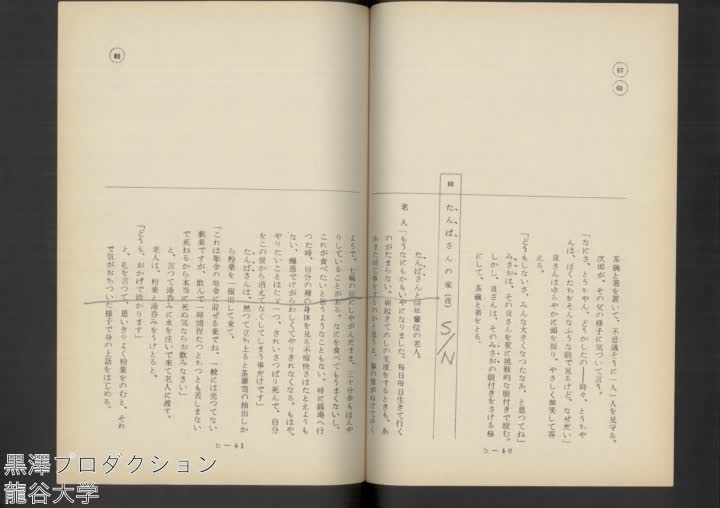 67
68
茶碗と箸を置いて、不思議そうに一人一人を見守る。
次郎が、その父の様子に気づいて言う。
「なにさ、とうちゃん、どうかしたの――時々、とうちゃ
んは、ぼくたちをそんなふうな眼で見るけど、なぜだい」
良さんはゆるやかに頭を振り、やさしく微笑して答
える。
「どうもしないさ、みんな大きくなったなあ、と思ってね」
みさおは、その良さんを変に挑戦的な眼付きで睨む。
しかし、良さんは、そのみさおの眼付きをさける様
にして、茶碗と箸をとる。
68 たんばさんの家(夜)
S/N
たんばさんと同年輩位の老人。
老人「もうなにもかもいやになりました。毎日毎日生きて行く
のがたまらない。朝起きてめしの支度をするときも、あ
ようで、七輪の前にしゃがんだまま、三十分もぼんや
りしていることがある。なにを食べてもうまくないし、
これが食べたいと思うようなこともない。時に銭湯へ行
った時、自分の裸の身体を見る不愉快さはたとえようも
ない、醜悪でけがらわしくてやりきれなくなる。もはや、
やりたいことはただ一つ、きれいさっぱり死んで、自分
をこの世から消えてなくしてしまう事だけです」
たんばさんは、黙って立ち上ると茶箪笥の抽出しか
ら粉薬を一服出して来て、
「これは彫金の地金に混ぜる薬でね、一般には売ってない
劇薬ですが、飲んで一時間程たつとちっとも苦しまない
で死ねるから本当に死ぬ気ならお飲みなさい」
と、言って湯呑みに水を注いで来て老人に渡す。
老人は、粉薬と湯呑みをうけとると、
「どうも、おかげで助かります」
と、礼を言って、思いきりよく粉薬をのむと、それ
で気がおちついた様子で身の上話をはじめる。
D—40
D—41
黒澤プロダクション
龍谷大学